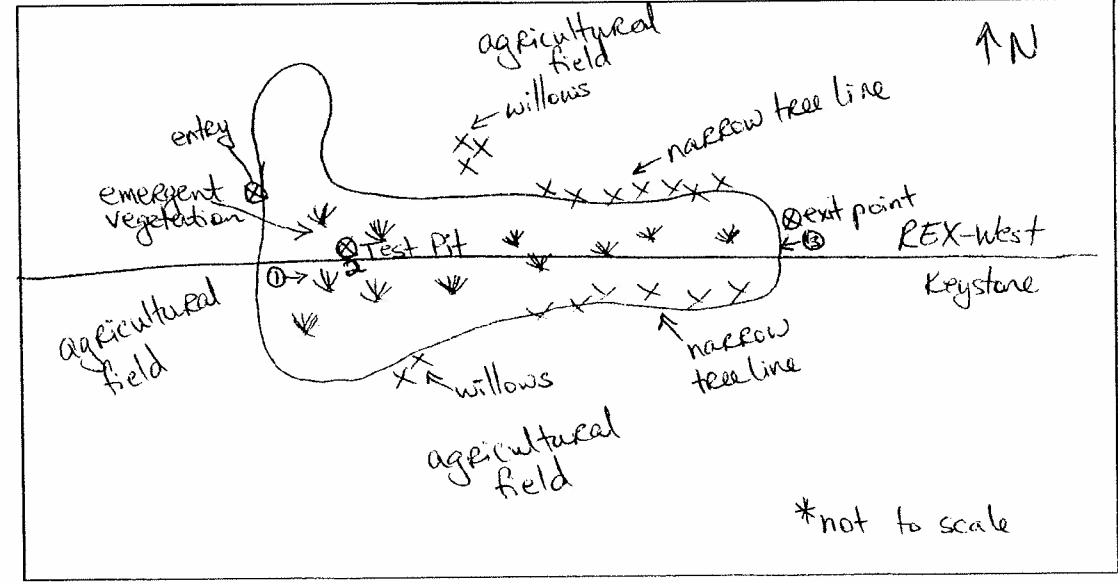 agricultural
field
↑N
← willows
narrow tree line
entry
emergent
vegetation
exit point
Test Pit
2
← 3
REX-West
1 →
Keystone
agricultural
field
narrow
tree line
willows
agricultural
field
*not to scale